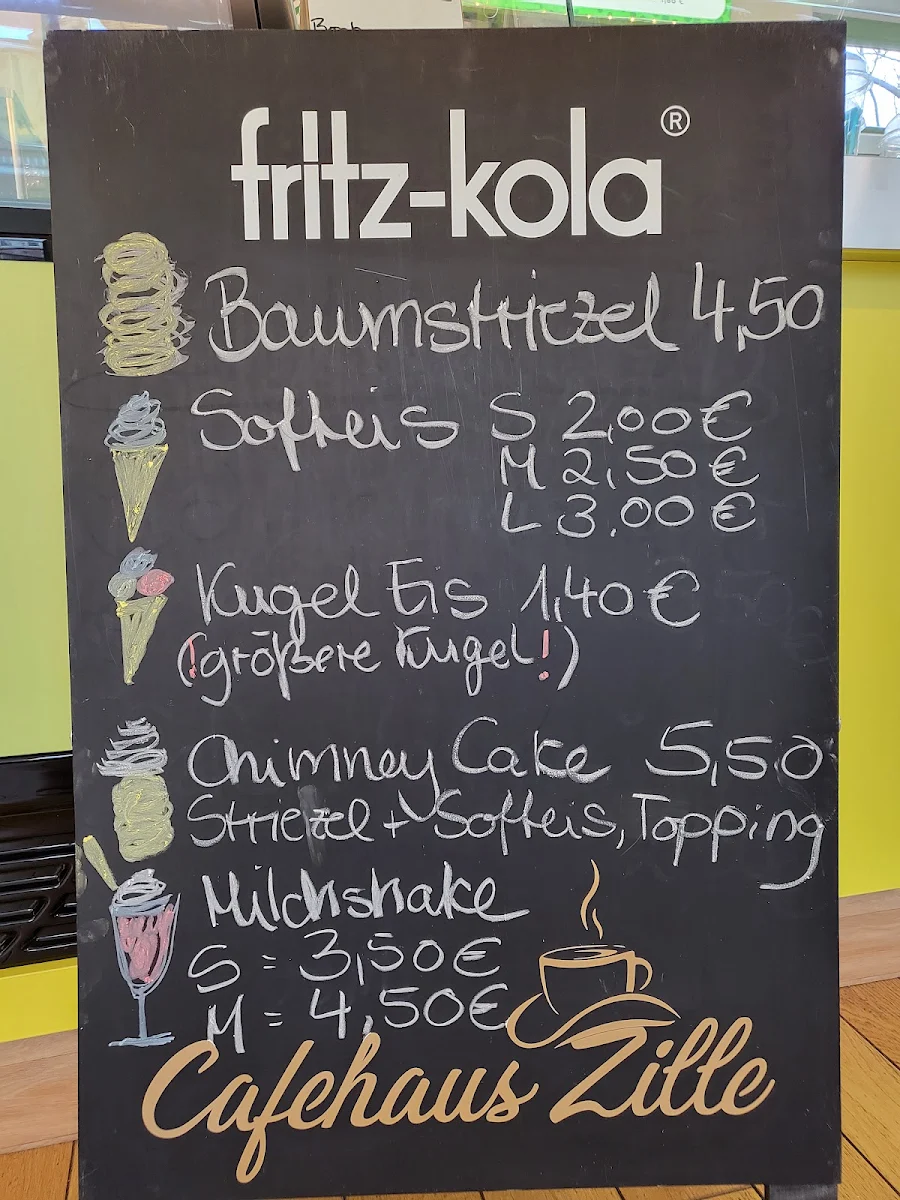 fritz-kola®
Baumstriezel 4,50
Softeis S 2,00€
M 2,50€
L 3,00€
Kugel Eis 1,40€
(!größere Kugel!)
Chimney Cake 5,50
Striezel + Softeis, Topping
Milchshake
S = 3,50€
M = 4,50€
Cafehaus Zille